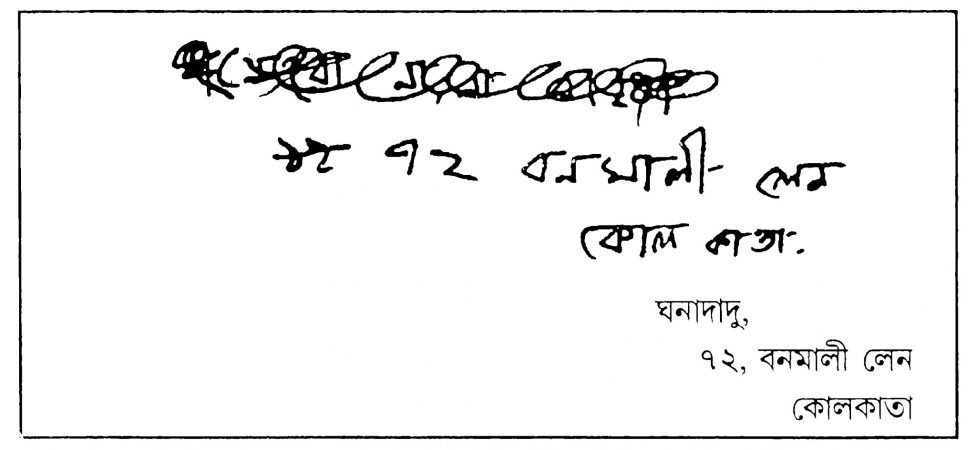 ৭২ বনমালী লেন
কোলকাতা.
ঘনাদাদু,
৭২, বনমালী লেন
কোলকাতা